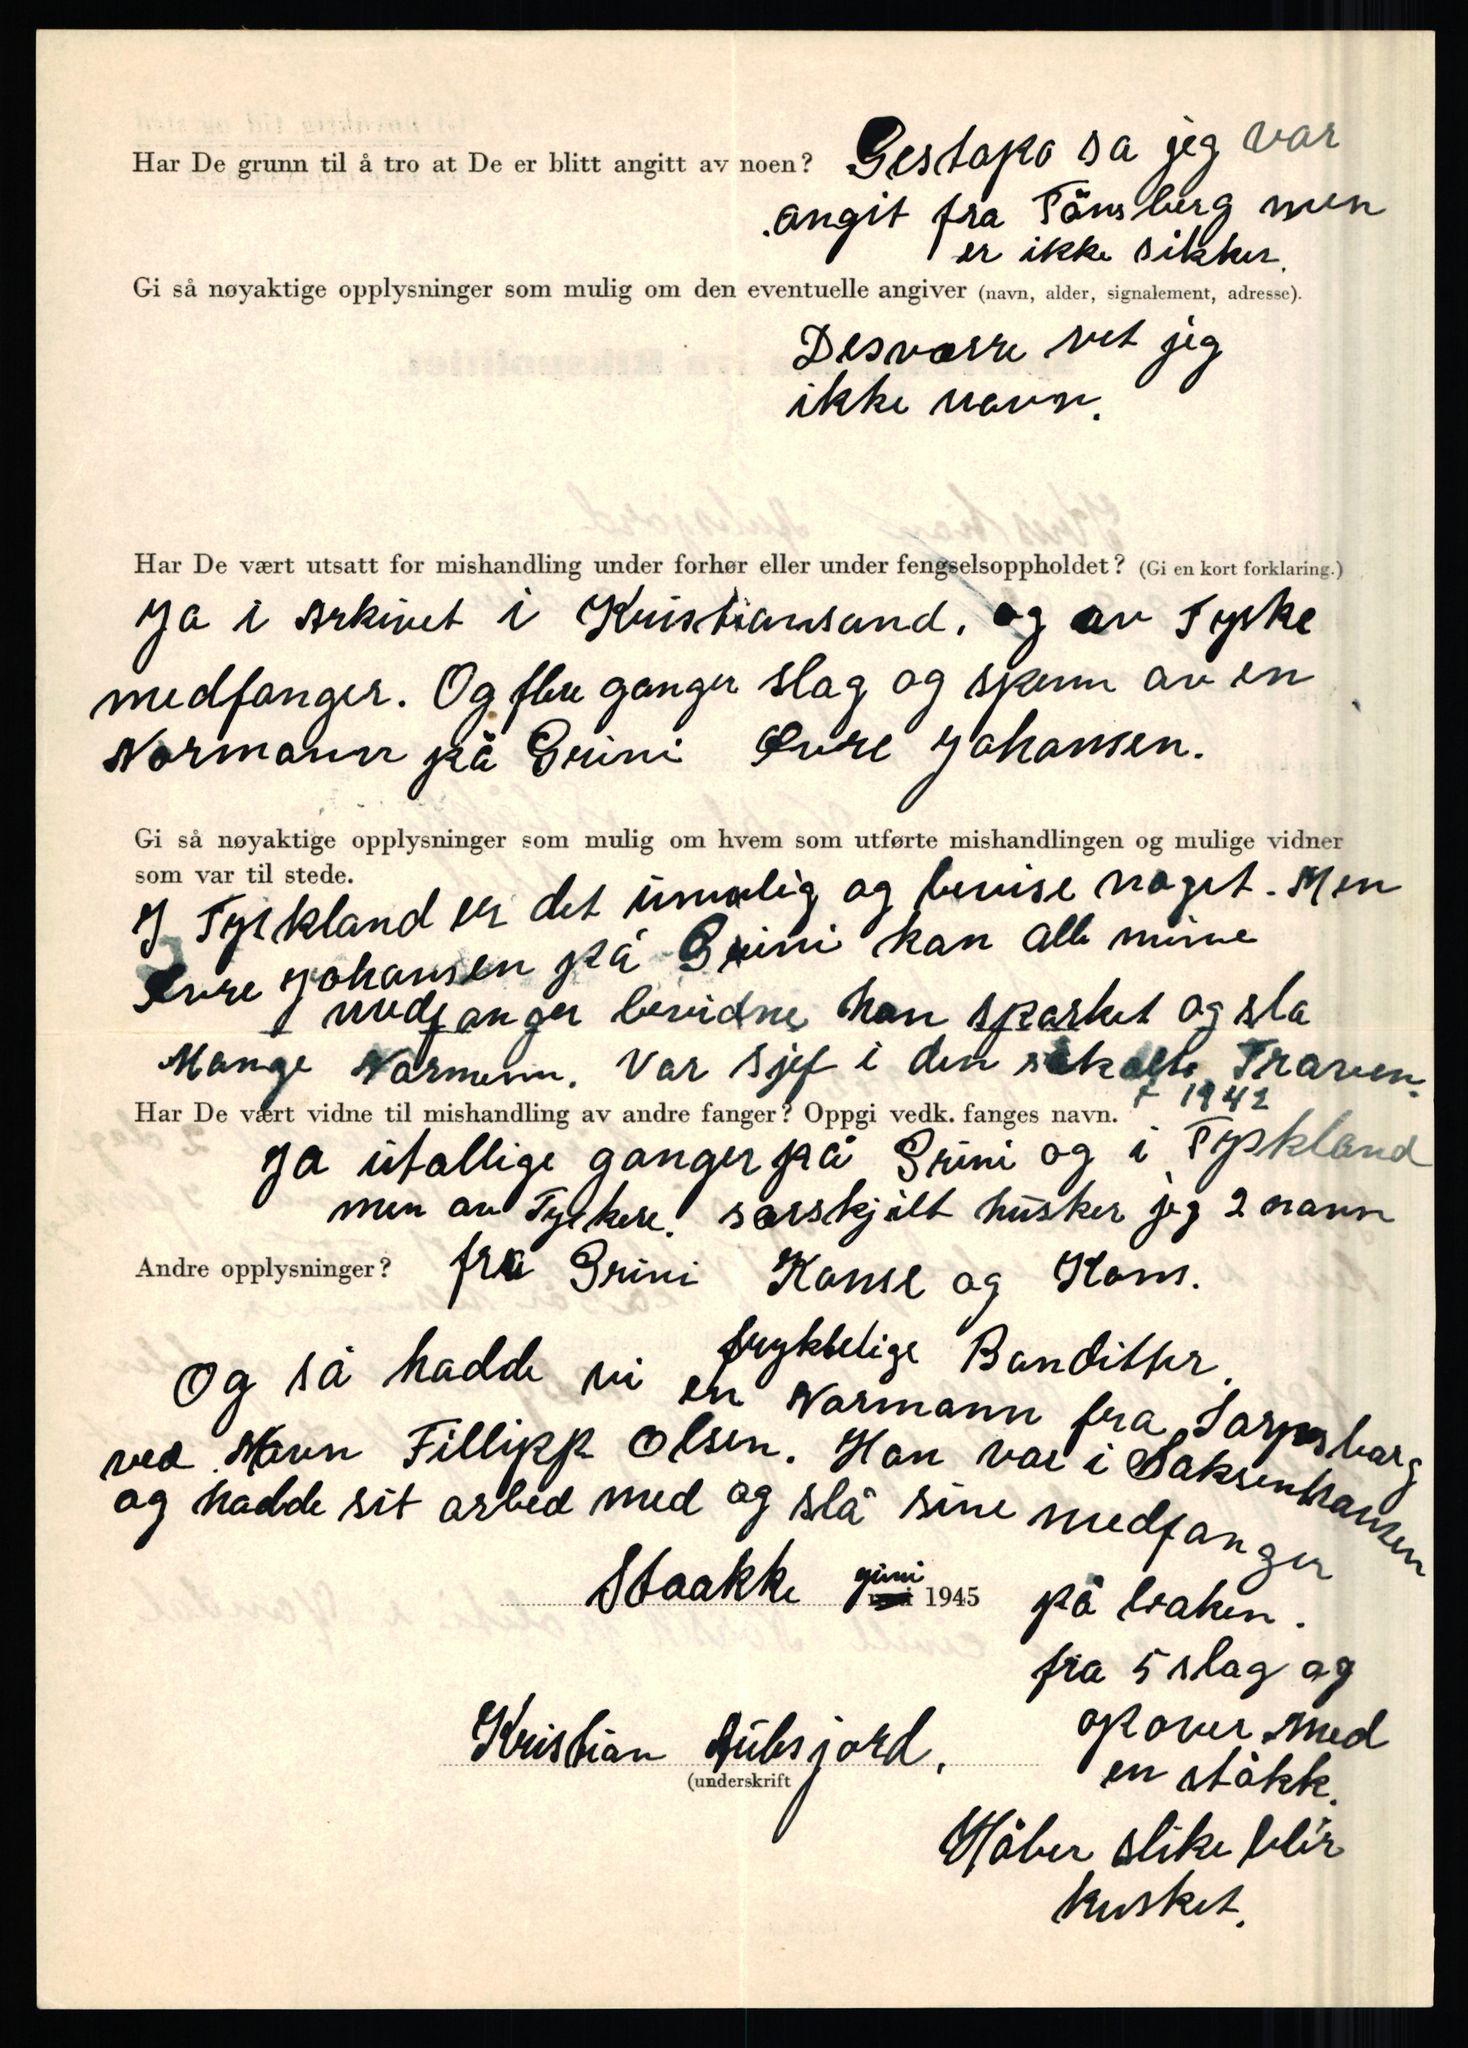 Har De grunn til å tro at De er blitt angitt av noen? Gestapo sa jeg var
angit fra Tönsberg men
er ikke sikker.
Gi så nøyaktige opplysninger som mulig om den eventuelle angiver (navn, alder, signalement, adresse).
Desværre vet jeg
ikke navn.
Har De vært utsatt for mishandling under forhør eller under fengselsoppholdet? (Gi en kort forklaring.)
Ja i Arkivet i Kristiansand. og av Tyske
medfanger. Og flere ganger slag og spenn av en
Normann på Grini Øvre Johansen.
Gi så nøyaktige opplysninger som mulig om hvem som utførte mishandlingen og mulige vidner
som var til stede.
J Tyskland er det umulig og bevise noget. Men
Øvre Johansen på Grini kan alle mine
medfanger bevidne han sparket og sla
Mange Normenn. Var sjef i den såkalte Traven.
Har De vært vidne til mishandling av andre fanger? Oppgi vedk. fanges navn. + 1942
Ja utallige ganger på Grini og i Tyskland
men av Tyskere. særskjilt husker jeg 2 navn
Andre opplysninger? fra Grini Kunse og Kons.
fryktelige Banditter.
Og så hadde vi en Normann fra Sarpsborg
ved Navn Fillipp Olsen. Han var i Saksenhausen
og hadde sit arbed med og slå sine medfanger
på baken.
Staakke juni 1945
fra 5 slag og
opover med
Kristian Aubsjord.
en ståkk.
(underskrift
Håber slike blir
husket.